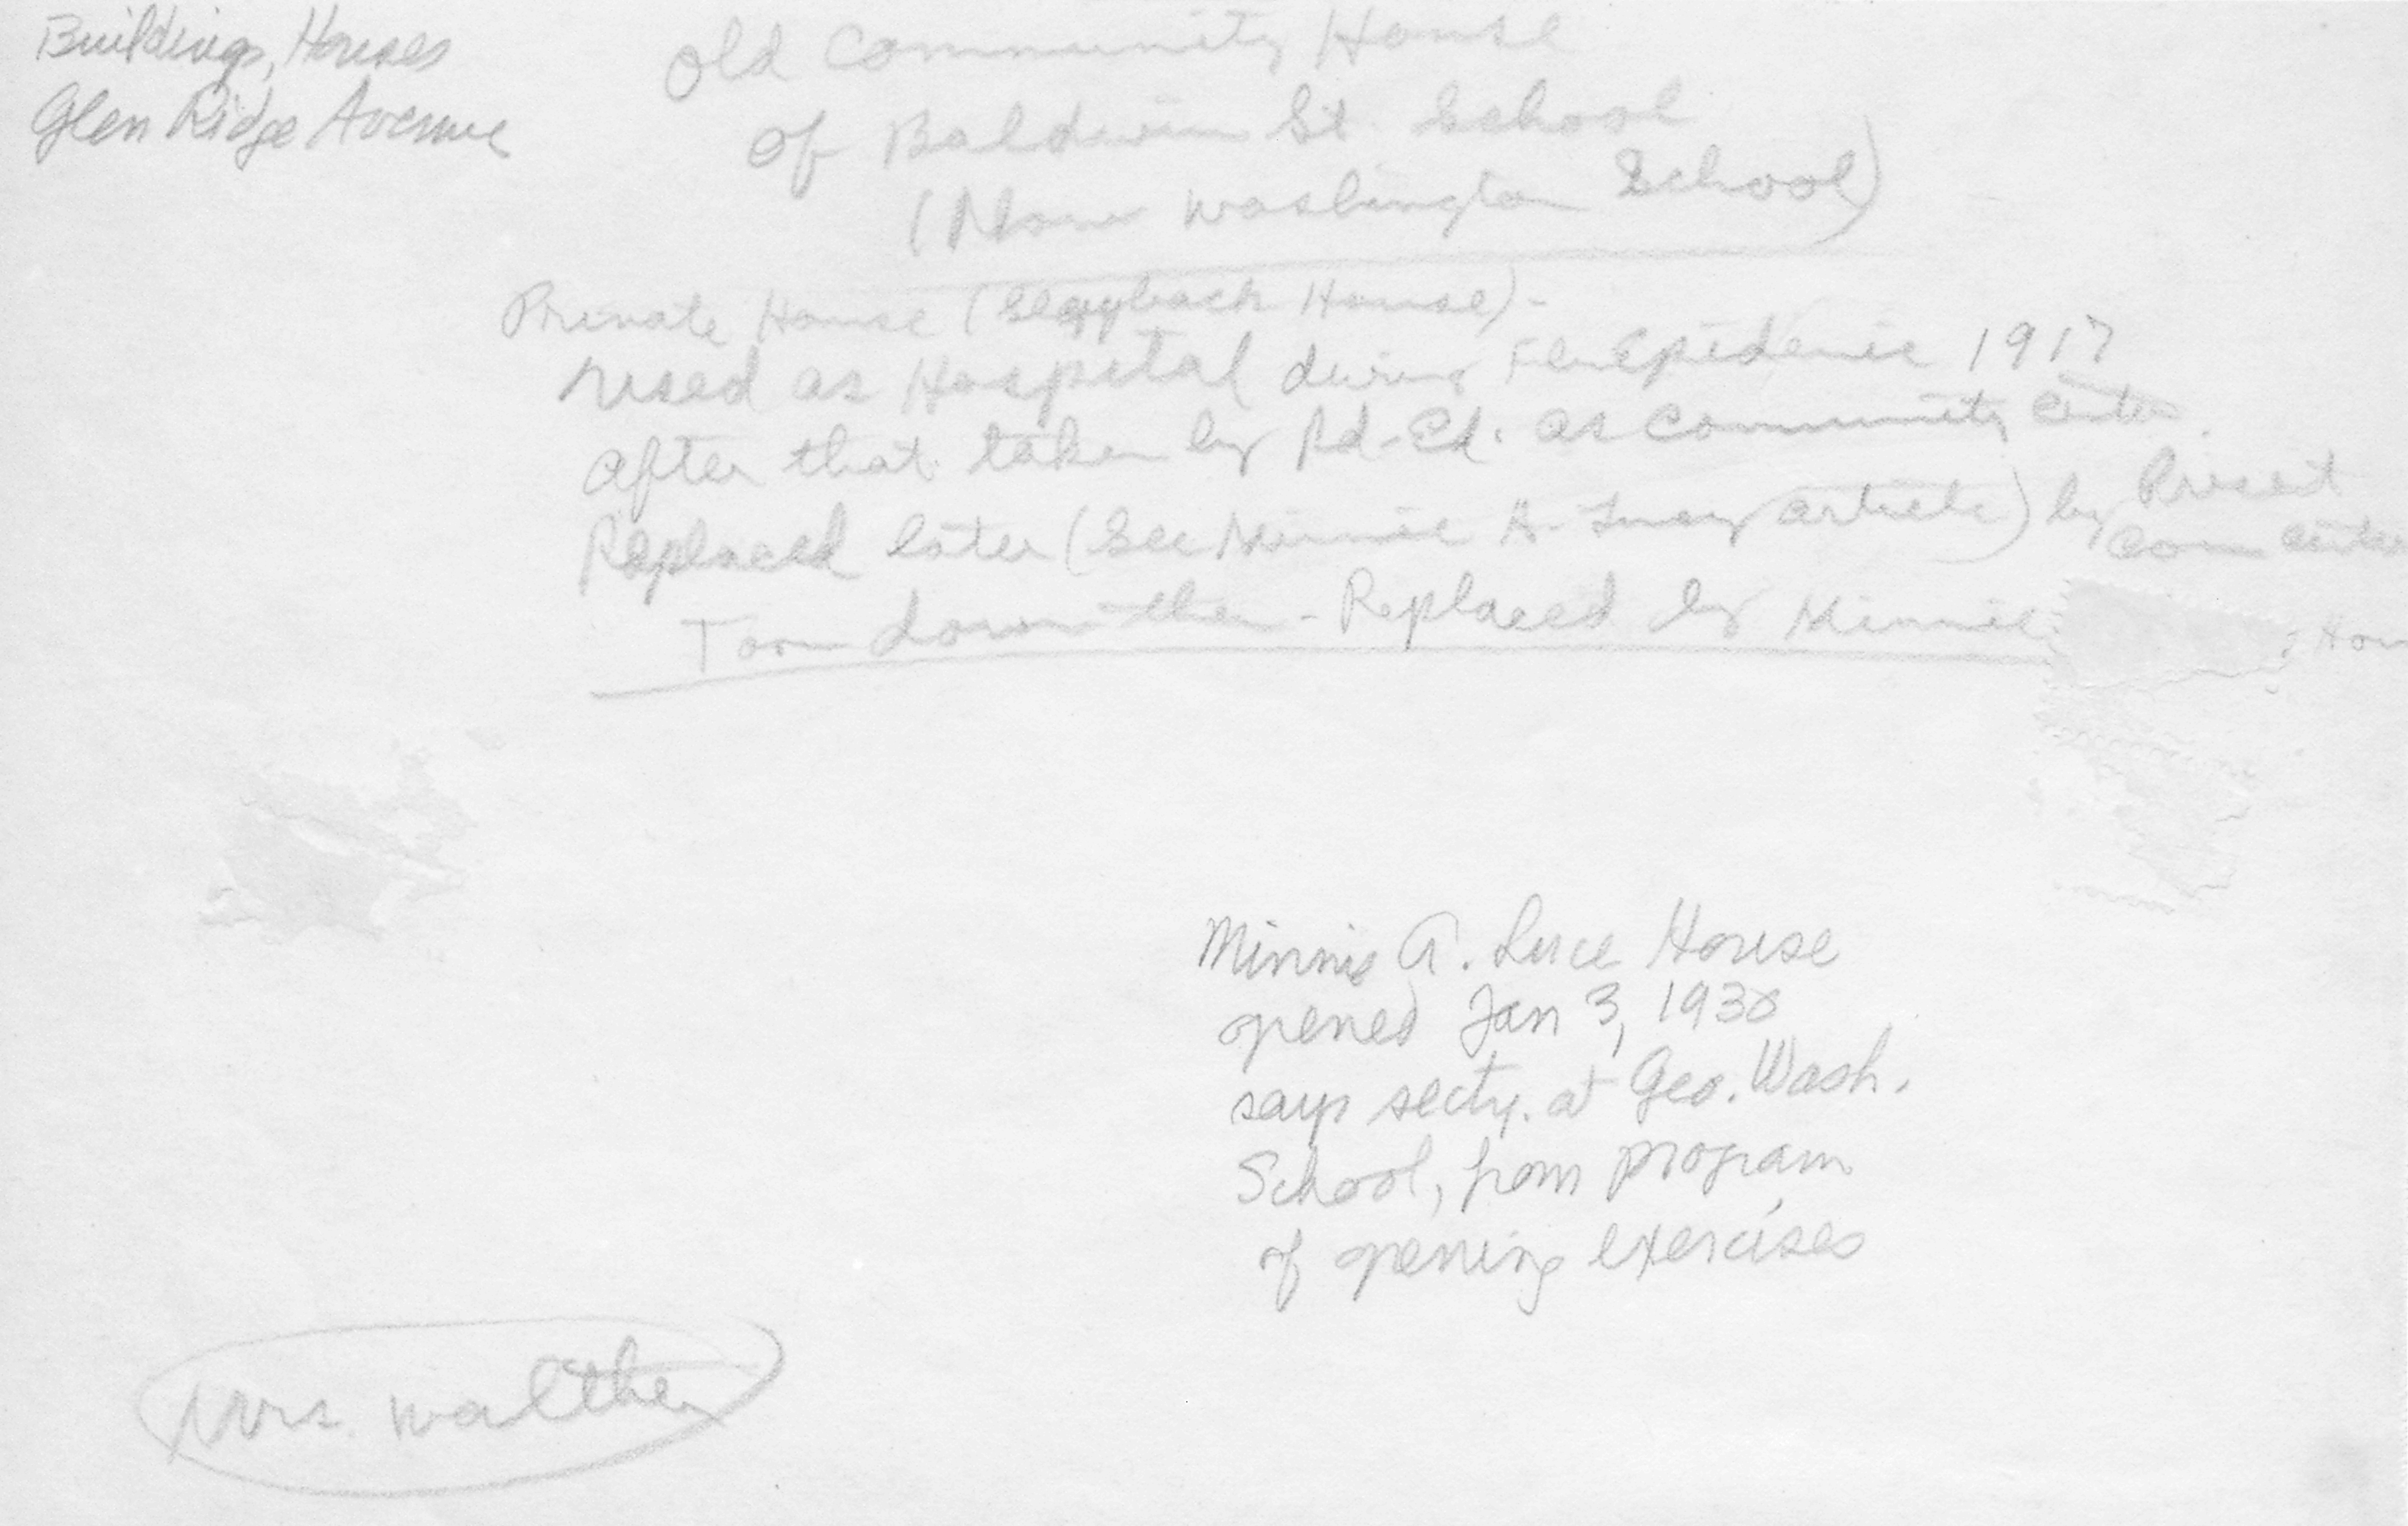 Buildings, Houses
Glen Ridge Avenue
Old Community House
of Baldwin St. School
(Now Washington School)
Private House ( House) -
used as Hospital during Flu Epidemic 1917
after that taken by Bd-Ed. as Community Center.
Replaced later (See Minnie A. article) by Present
Com Center
Torn down then - Replaced by Minnie
Minnie A. Luce House
opened Jan 3, 1930
says secty. at Geo. Wash.
School, from program
of opening exercises
Mrs. Walther